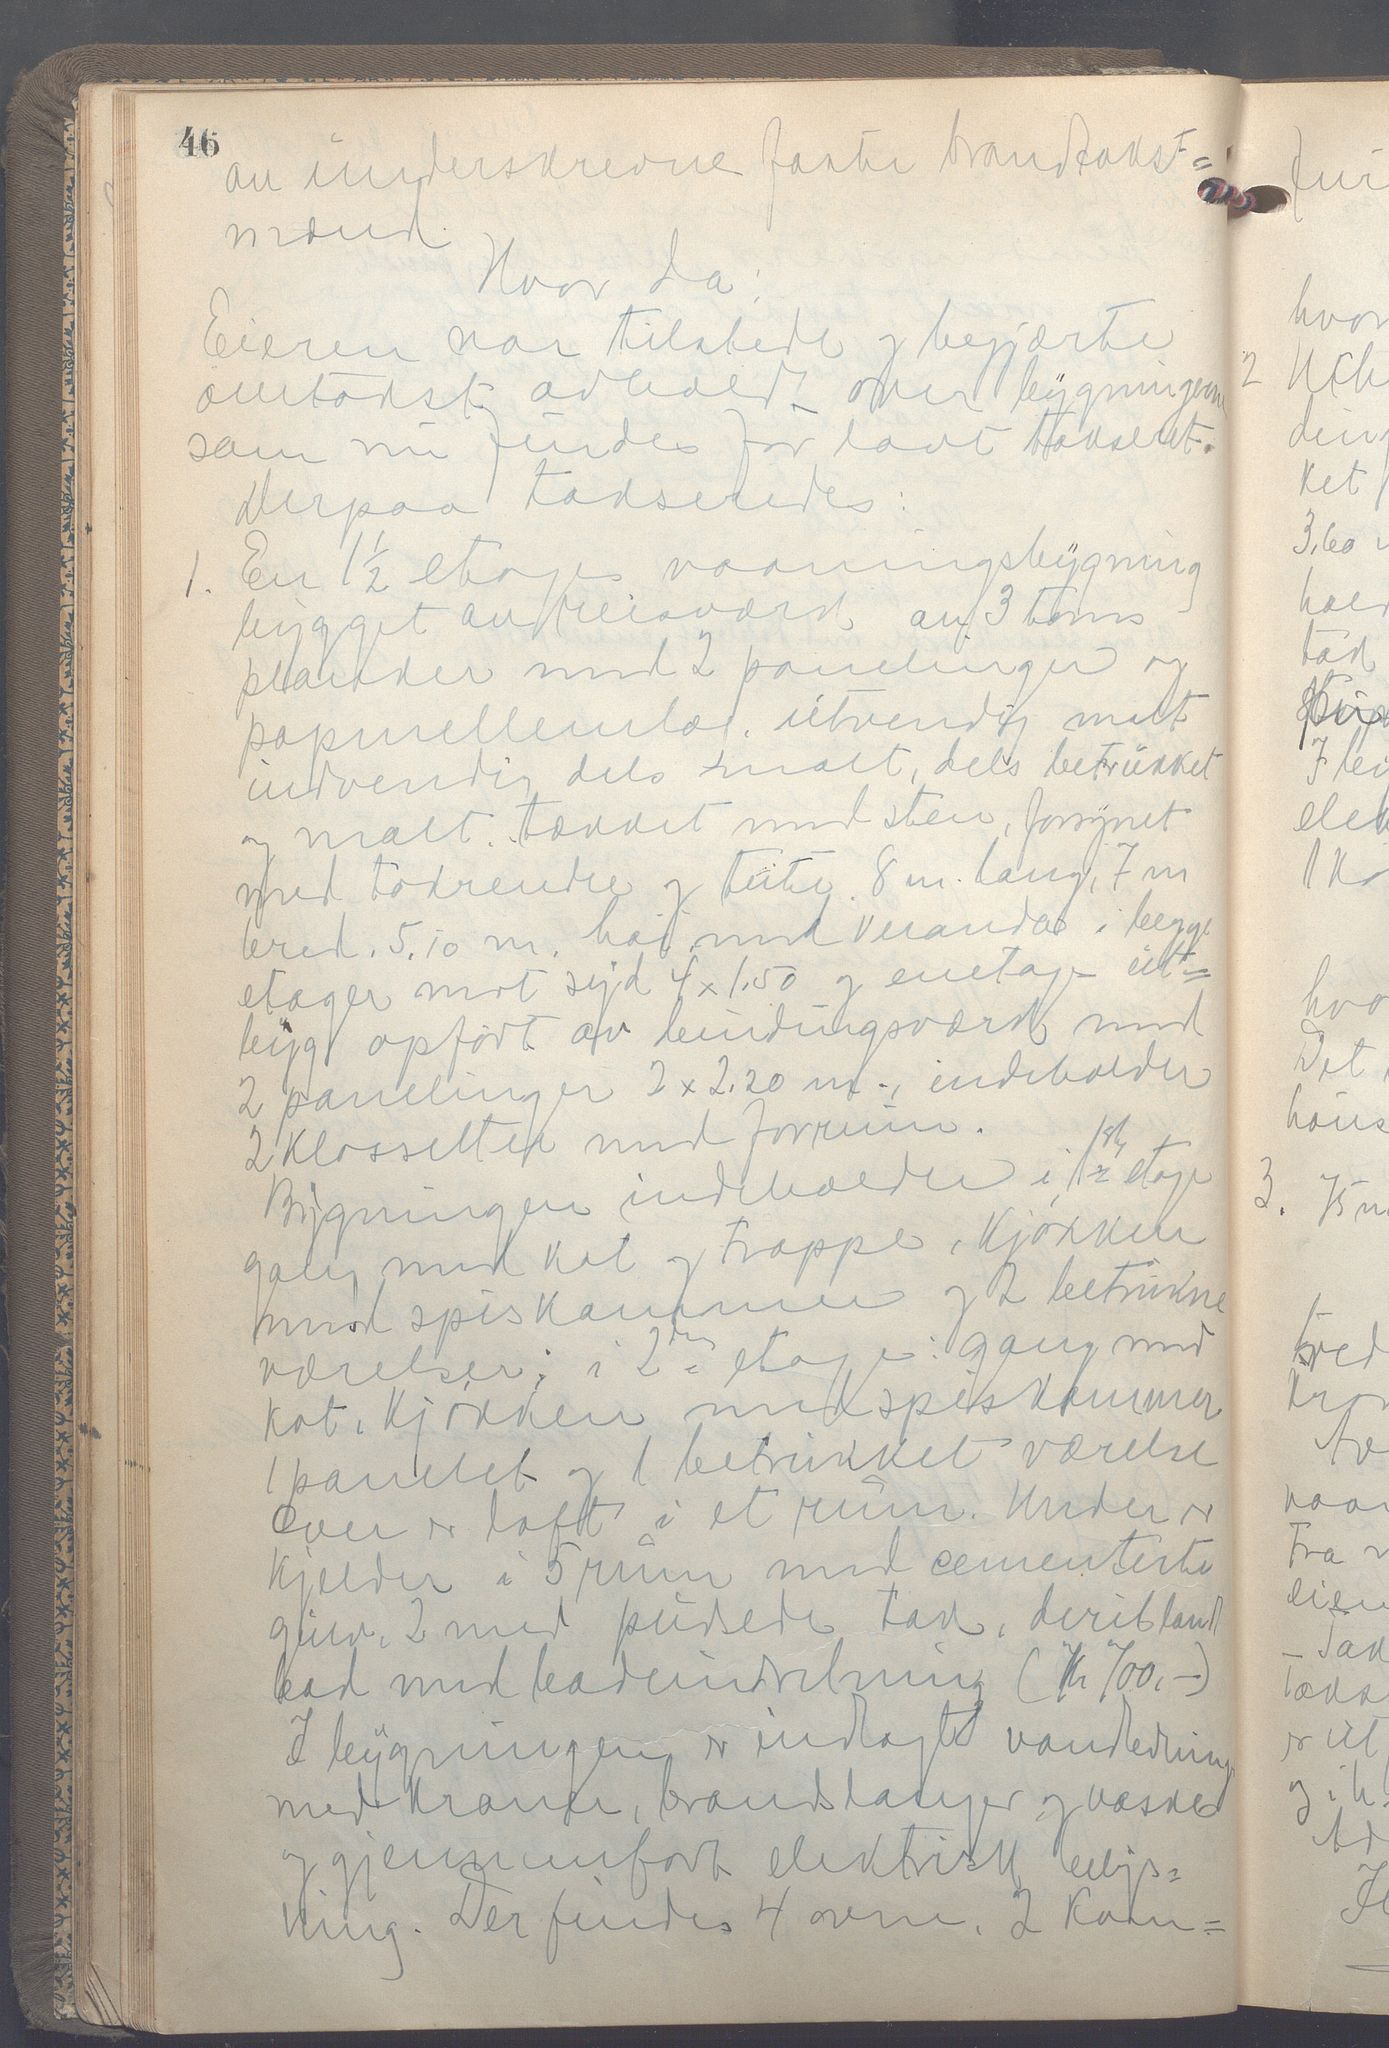 46
av underskrevne faste brandtakst=
mænd.
Hvor da:
Eieren var tilstede og begjærte
omtakst avholdt over bygningerne
som nu findes for lavt taksert.
Derpaa takseredes:
1. En 1½ etages vaaningsbygning
bygget av reisværk av 3 toms
planker med 2 panelinger og
papmellemlæg, utvendig malt
indvendig dels malt, dels betrukket
og malt. tækket med sten, forsynet
med takrender og tute. 8 m. lang, 7 m
bred. 5.10 m. høi, med veranda i begge
etager mot syd 4 x 1.50 og enetages ut=
bygg opført av bindingsværk med
2 panelinger 2 x 2.20 m., indeholder
2 klossetter med forrum.
Bygningen indeholder i 1ste etage
gang med kot og trappe, kjøkken
med spiskammer og 2 betrukne
værelser; i 2den etage: gang med
kot, kjøkken med spiskammer
1 panelet og 1 betrukket værelse
Over er loft i et rum. Under er
kjelder i 5 rum med cementerte
gulv, 2 med pudsede tak, deriblandt
bad med badeindretning (Kr 700,-)
I bygningen er indlagt vandledning
med kraner, brandslanger og vasker
og gjennemført elektrisk belys=
ning. Der findes 4 ovne, 2 kom=
2
3,60
ket
3.